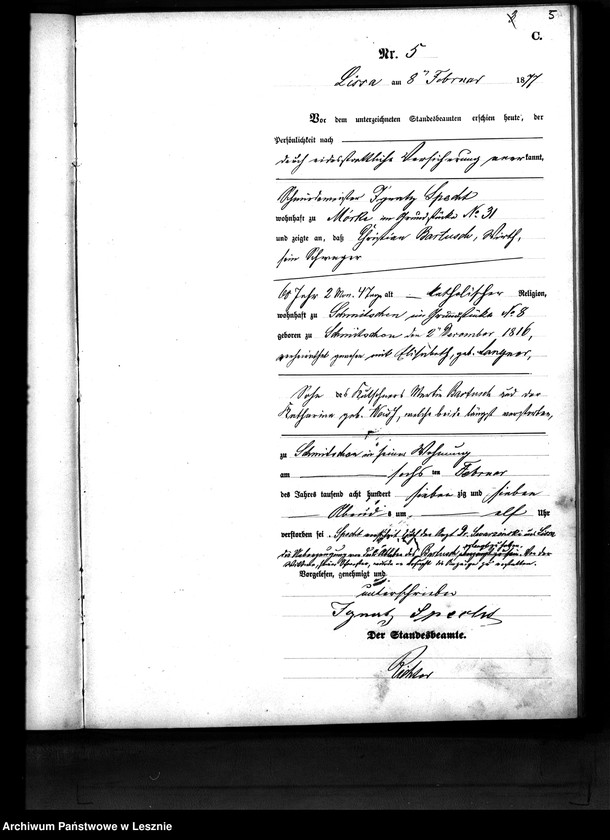 5
C.
Nr. 5
Lissa am 8ten Februar 1877
Vor dem unterzeichneten Standesbeamten erschien heute, der
Persönlichkeit nach
durch eidesstattliche Versicherung anerkannt,
Schmiedemeister Ignatz Specht
wohnhaft zu Mörke im Grundstücke No 31
und zeigte an, daß Christian Bartusch, Wirth,
sein Schwager
60 Jahr 2 Mon. 4 Tage alt katholischer Religion,
wohnhaft zu im Grundstücke No 8
geboren zu den 2ten December 1816,
verheirathet gewesen mit Elisabeth, geb. Langner,
Sohn des Kutschners Martin Bartusch und der
Katharina geb. welche beide längst verstorben,
zu in seiner Wohnung
am sechsten Februar
des Jahres tausend acht hundert siebenzig und sieben
Abends um elf Uhr
verstorben sei. Specht der Arzt Dr. aus Lissa
die Ueberzeugung vom des Bartusch Von der
Wittwe, seine Schwester, die Anzeige zu erstatten.
Vorgelesen, genehmigt und
unterschrieben
Ignatz Specht
Der Standesbeamte.
Richter
Archiwum Państwowe w Lesznie